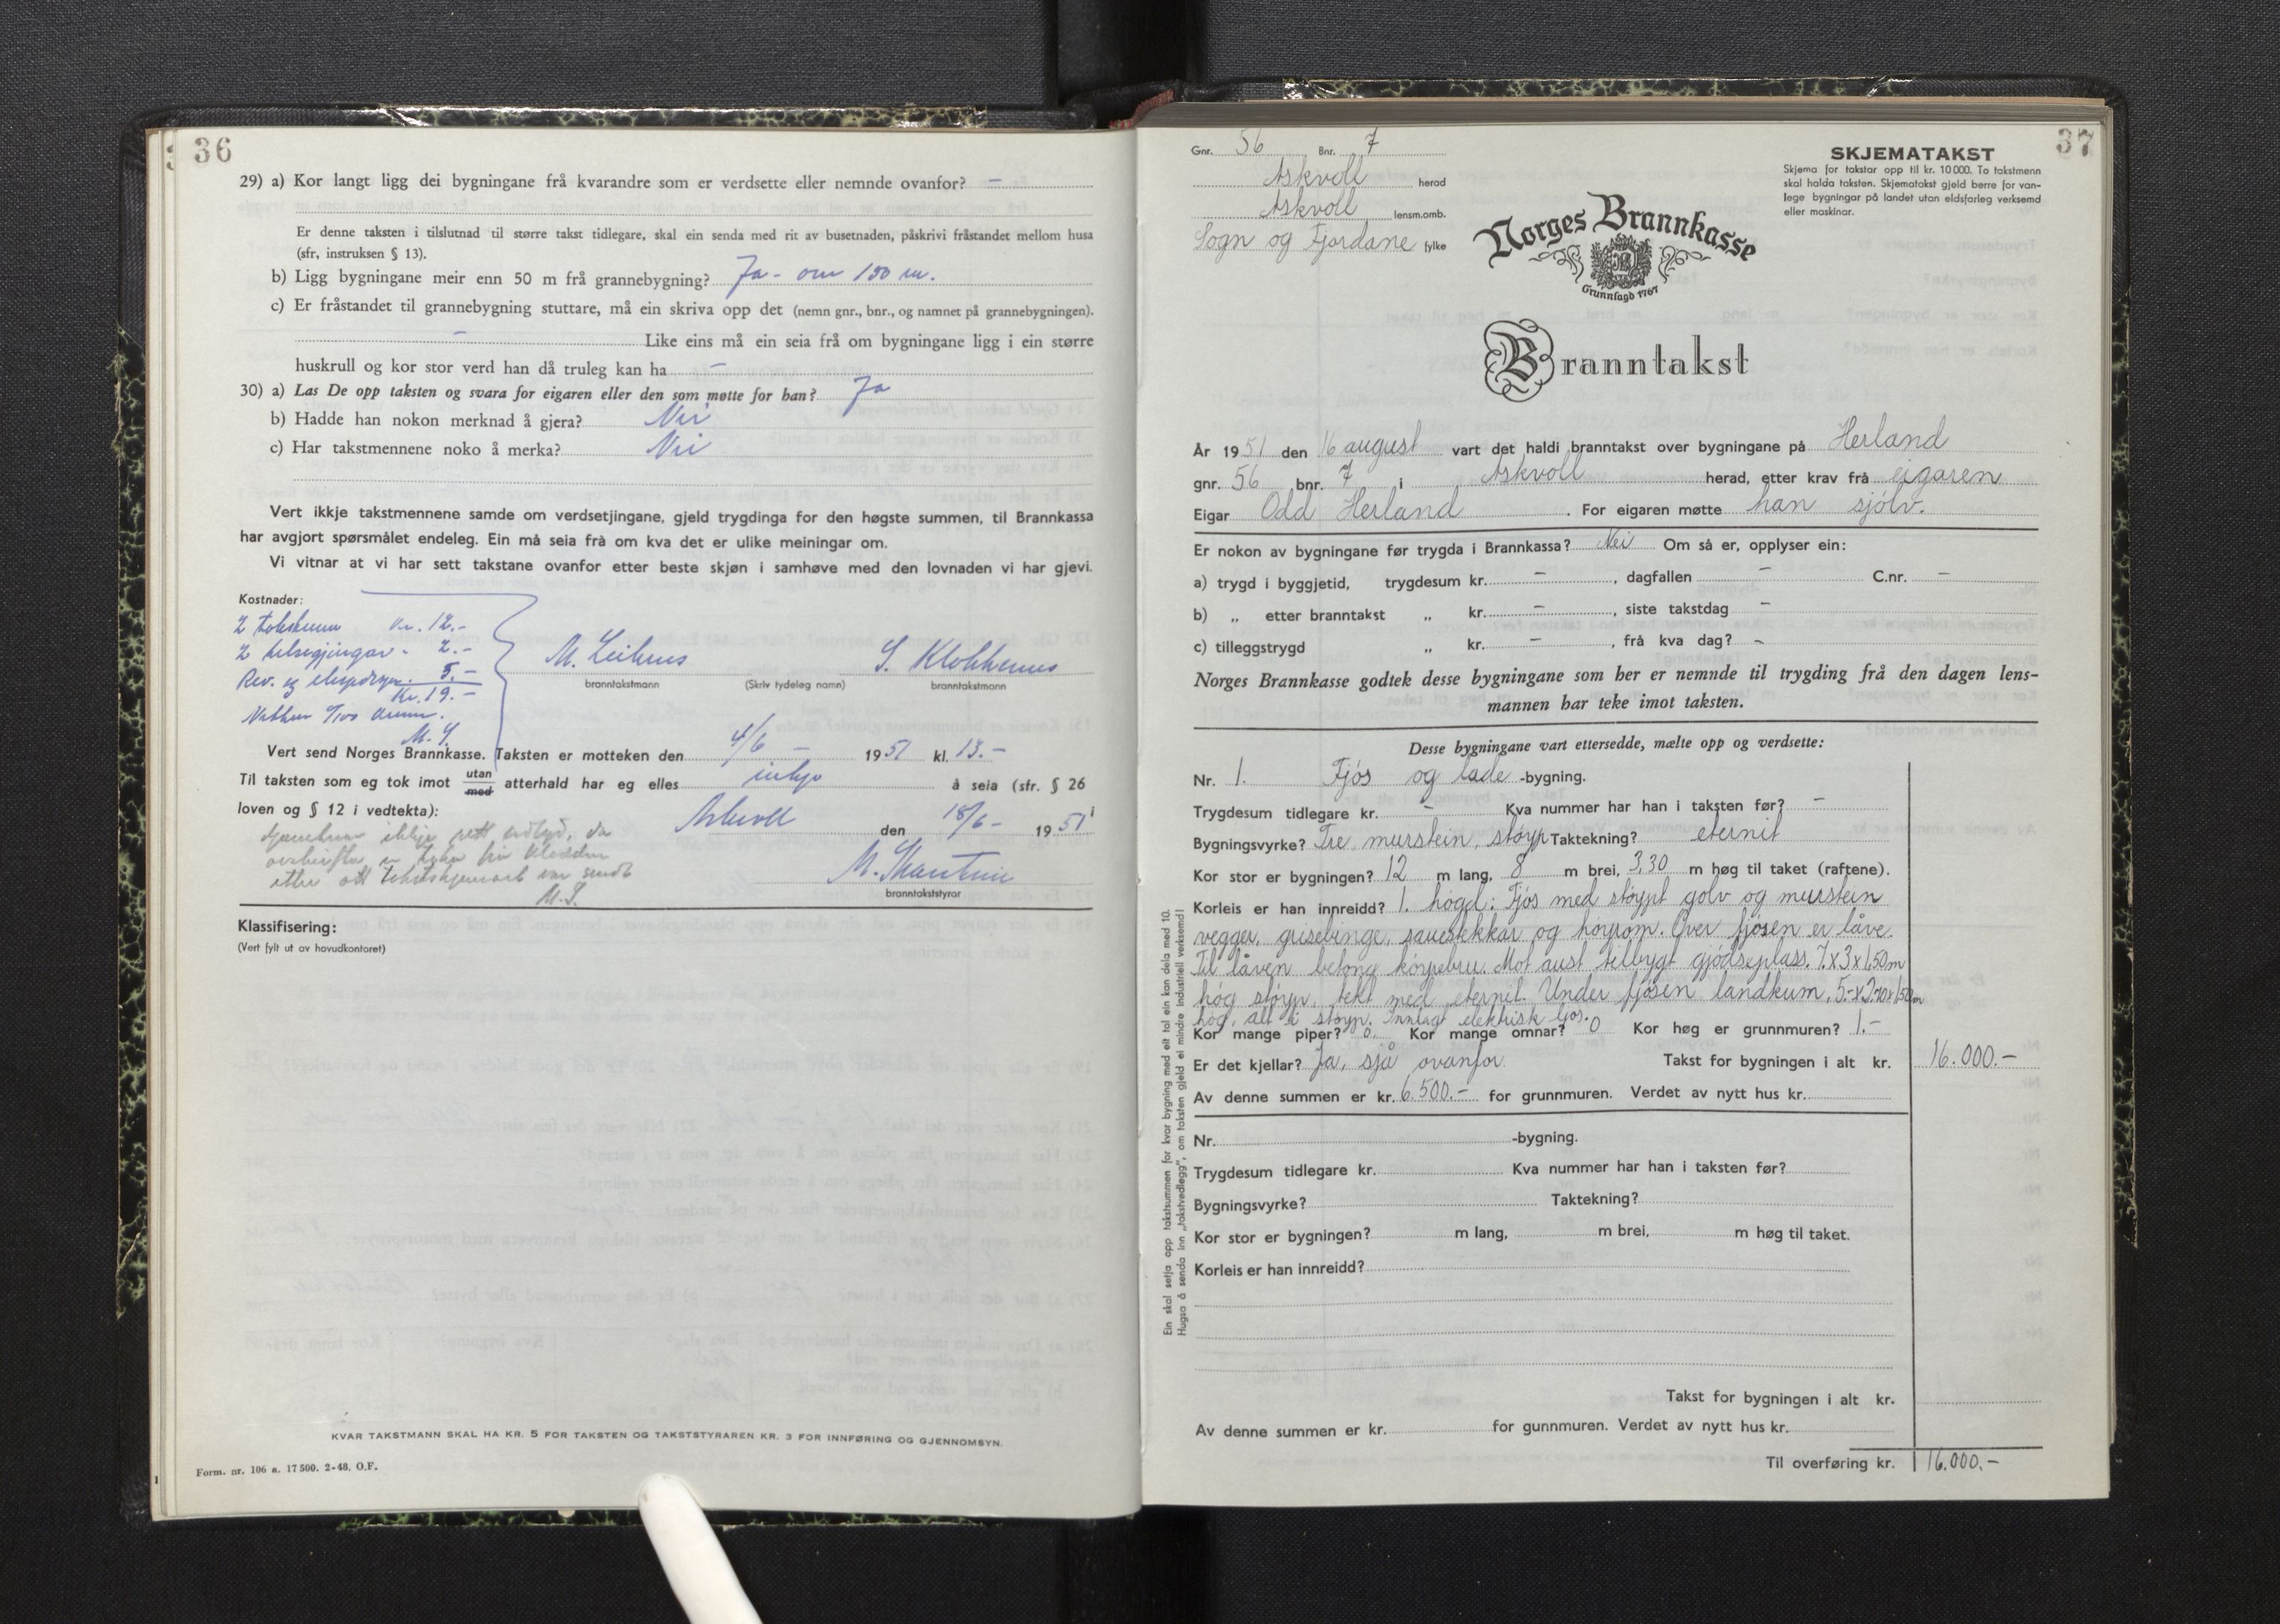 36
29) a) Kor langt ligg dei bygningane frå kvarandre som er verdsette eller nemnde ovanfor? –
Er denne taksten i tilslutnad til større takst tidlegare, skal ein senda med rit av busetnaden, påskrivi fråstandet mellom husa
(sfr, instruksen § 13).
b) Ligg bygningane meir enn 50 m frå grannebygning? Ja - om 150 m.
c) Er fråstandet til grannebygning stuttare, må ein skriva opp det (nemn gnr., bnr., og namnet på grannebygningen).
– Like eins må ein seia frå om bygningane ligg i ein større
huskrull og kor stor verd han då truleg kan ha –
30) a) Las De opp taksten og svara for eigaren eller den som møtte for han? Ja
b) Hadde han nokon merknad å gjera? Nei
c) Har takstmennene noko å merka? Nei
Vert ikkje takstmennene samde om verdsetjingane, gjeld trygdinga for den høgste summen, til Brannkassa
har avgjort spørsmålet endeleg. Ein må seia frå om kva det er ulike meiningar om.
Vi vitnar at vi har sett takstane ovanfor etter beste skjøn i samhøve med den lovnaden vi har gjevi.
Kostnader:
2 takstmenn kr. 12.-
2 - 2.-
Rev. og 5.-
Kr. 19.-
M. S.
M. Leihus S. Klokkernes
branntakstmann (Skriv tydeleg namn) branntakstmann
Vert send Norges Brannkasse. Taksten er motteken den 4/6 – 1951 kl. 13.-
Til taksten som eg tok imot utan med atterhald har eg elles inkje å seia (sfr. § 26
loven og § 12 i vedtekta):
Askvoll den 18/6 - 1951
ikkje rett
etter att var sendt
M. S.
branntakststyrar
Klassifisering:
(Vert fylt ut av hovudkontoret)
KVAR TAKSTMANN SKAL HA KR. 5 FOR TAKSTEN OG TAKSTSTYRAREN KR. 3 FOR INNFØRING OG GJENNOMSYN.
Form. nr. 106 a. 17 500. 2-48. O.F.
37
Gnr. 56 Bnr. 7
Askvoll herad
Askvoll lensm.omb.
Sogn og Fjordane fylke
SKJEMATAKST
Skjema for takstar opp til kr. 10 000. To takstmenn
skal halda taksten. Skjematakst gjeld berre for van-
lege bygningar på landet utan eldsfarleg verksemd
eller maskinar.
Norges Brannkasse
Grunnlagd 1767
Branntakst
År 1951 den 16 august vart det haldi branntakst over bygningane på Herland
gnr. 56 bnr. 7 i Askvoll herad, etter krav frå eigaren
Eigar Odd Herland. For eigaren møtte han sjølv.
Er nokon av bygningane før trygda i Brannkassa? Nei Om så er, opplyser ein:
a) trygd i byggjetid, trygdesum kr. –, dagfallen – C.nr. –
b) „ etter branntakst „ kr. –, siste takstdag –
c) tilleggstrygd „ kr. –, frå kva dag? –
Norges Brannkasse godtek desse bygningane som her er nemnde til trygding frå den dagen lens-
mannen har teke imot taksten.
Desse bygningane vart ettersedde, mælte opp og verdsette:
Nr. 1. Fjós og lade -bygning.
Trygdesum tidlegare kr. – Kva nummer har han i taksten før? –
Bygningsvyrke? Tre, murstein, stöyp Taktekning? eternit
Kor stor er bygningen? 12 m lang, 8 m brei, 3,30 m høg til taket (raftene).
Korleis er han innreidd? 1. högd: Fjós med stöypt golv og murstein
vegger, grisebinge, sauestekkar og höyrom. Over fjósen er låve.
Til låven betong köyrebru. Mot aust tilbygt gjödseplass. 7x3x1,50 m
hög stöyp, tekt med eternit. Under fjósen landkum, 5.-x2.70x1,50 m
hög, alt i stöyp. Innlagt elektrisk ljos.
Kor mange piper? 0. Kor mange omnar? 0 Kor høg er grunnmuren? 1.-
Er det kjellar? Ja, sjå ovanfor. Takst for bygningen i alt kr. 16.000.-
Av denne summen er kr. 6.500.- for grunnmuren. Verdet av nytt hus kr.
Nr. -bygning.
Trygdesum tidlegare kr. Kva nummer har han i taksten før?
Bygningsvyrke? Taktekning?
Kor stor er bygningen? m lang, m brei, m høg til taket.
Korleis er han innreidd?
Takst for bygningen i alt kr.
Av denne summen er kr. for gunnmuren. Verdet av nytt hus kr.
Til overføring kr. 16.000.-
Ein skal setja opp takstsummen for kvar bygning med eit tal ein kan dela med 10.
Hugsa å senda inn „takstvedlegg", om taksten gjeld ei mindre industriell verksemd!